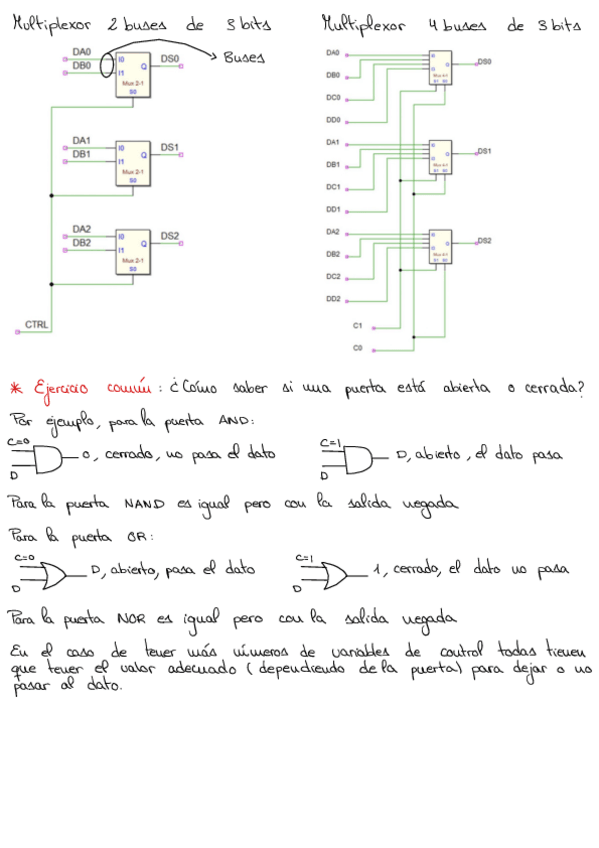 Multiplexor 2 buses de 3 bits
Multiplexor 4 buses de 3 bits
DA0
DB0
I0
I1
Q
Mux 2-1
S0
DS0
Buses
DA1
DB1
I0
I1
Q
Mux 2-1
S0
DS1
DA2
DB2
I0
I1
Q
Mux 2-1
S0
DS2
CTRL
DA0
DB0
DC0
DD0
Q
Mux 4-1
S1 S0
DS0
DA1
DB1
DC1
DD1
Q
Mux 4-1
S1 S0
DS1
DA2
DB2
DC2
DD2
Q
Mux 4-1
S1 S0
DS2
C1
C0
* Ejercicio común: ¿Cómo saber si una puerta está abierta o cerrada?
Por ejemplo, para la puerta AND:
C=0
D
0, cerrado, no pasa el dato
C=1
D
D, abierto, el dato pasa
Para la puerta NAND es igual pero con la salida negada
Para la puerta OR:
C=0
D
D, abierto, pasa el dato
C=1
D
1, cerrado, el dato no pasa
Para la puerta NOR es igual pero con la salida negada
En el caso de tener más números de variables de control todas tienen
que tener el valor adecuado (dependiendo de la puerta) para dejar o no
pasar al dato.